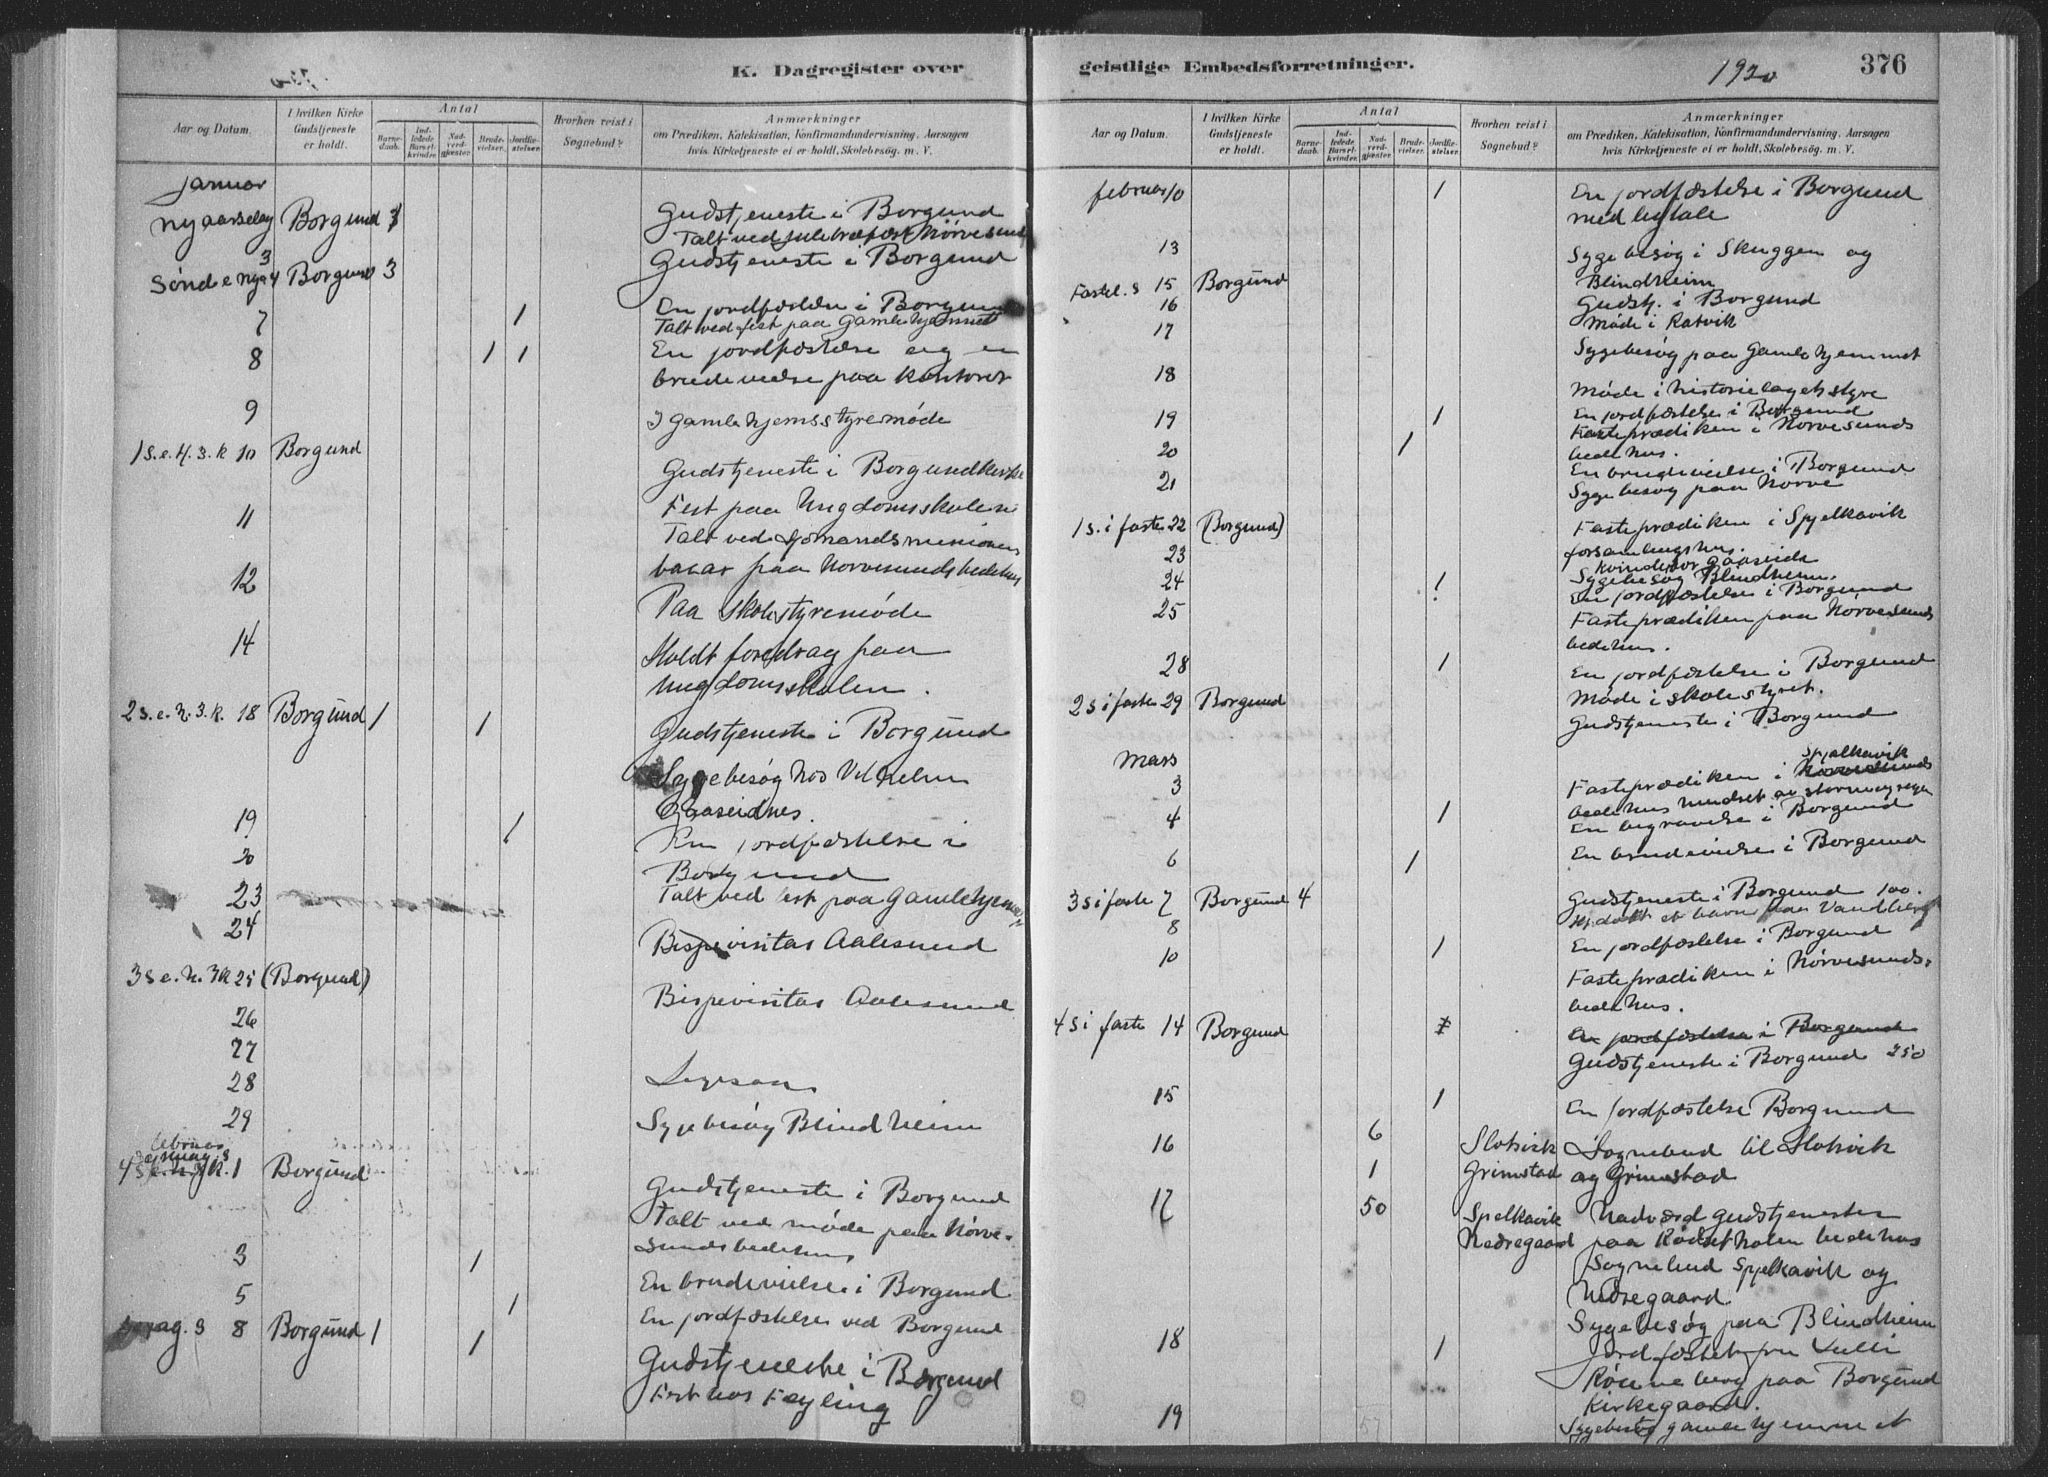 K. Dagregister over
Aar og Datum.
I hvilken Kirke Gudstjeneste er holdt.
Antal
Barnedaab.
Indledede Barselkvinder.
Nadverdgjæster.
Brudevielser.
Jordfæstelser.
Hvorhen reist i Sognebud?
Anmærkninger
om Prædiken, Katekisation, Konfirmandundervisning, Aarsagen
hvis Kirketjeneste ei er holdt, Skolebesøg. m. V.
Januar
nyaarsdag Borgund Gudstjeneste i Borgund
Talt ved juletræfest Nørvesund
3
Sønd e nyaar 4 Borgund 3 Gudstjeneste i Borgund
7 1 En jordfæstelse i Borgund
Talt ved fest paa Gamlehjemmet
8 1 1 En jordfæstelse og en
brudevielse paa kontoret
9 I gamlehjemsstyremøde
1 S. e. H. 3. k 10 Borgund Gudstjeneste i Borgundkirke
Fest paa Ungdomsskolen
11 Talt ved sjømandsmissionens
basar paa Nørvesunds bedehus
12 Paa skolestyremøde
14 Holdt foredrag paa
Ungdomsskolen.
2 s. e. h. 3. k. 18 Borgund 1 1 Gudstjeneste i Borgund
Sygebesøg hos Vilhelm
Gaaseidnes.
19 1 En jordfæstelse i
20 Borgund
23 Talt ved fest paa Gamlehjemmet
24 Bispevisitas Aalesund
3 s e. h. 3k 25 (Borgund)
26 Bispevisitas Aalesund
27
28
29 Sygebesøg Blindheim
februar
1 Borgund Gudstjeneste i Borgund
Talt ved møde paa Nørve-
sundsbedehus
3 1 En brudevielse i Borgund
5 1 En jordfæstelse ved Borgund
8 Borgund 1 1 Gudstjeneste i Borgund
Fest hos Feyling
geistlige Embedsforretninger.
1920
376
Aar og Datum.
I hvilken Kirke Gudstjeneste er holdt.
Antal
Barnedaab.
Indledede Barselkvinder.
Nadverdgjæster.
Brudevielser.
Jordfæstelser.
Hvorhen reist i Sognebud?
Anmærkninger
om Prædiken, Katekisation, Konfirmandundervisning, Aarsagen
hvis Kirketjeneste ei er holdt, Skolebesøg. m. V.
februar 10 1 En jordfæstelse i Borgund
med ligtale
13 Sygebesøg i Skuggen og
Blindheim
Fastel. s 15 Borgund Gudstj. i Borgund
16 Møde i Ratvik
17 Sygebesøg paa Gamlehjemmet
18 Møde i historielagets styre
19 1 En jordfæstelse i Borgund
Fasteprædiken i Nørvesunds
bedehus.
20 1 En brudevielse i Borgund
21 Sygebesøg paa Nørve
1 s. i faste 22 (Borgund) Fasteprædiken i Spjelkavik
forsamlingshus.
23 Kvindefor Gaaseide
24 Sygebesøg Blindheim.
1 En jordfæstelse i Borgund
25 Fasteprædiken paa Nørvesunds
bedehus.
28 1 En jordfæstelse i Borgund
Møde i skolestyret.
2 s i faste 29 Borgund Gudstjeneste i Borgund
Mars
3 Fasteprædiken i Nørvesunds Spjelkavik
bedehus hindret av storm og regn
4 1 En begravelse i Borgund
6 1 En brudevielse i Borgund
3 s i faste 7 Borgund 4 Gudstjeneste i Borgund 100.
Hjdøbt et barn paa Vandberg
8 1 En jordfæstelse i Borgund
10 Fasteprædiken i Nørvesunds-
bedehus.
4 s i faste 14 Borgund En jordfæstelse i Borgund
Gudstjeneste i Borgund 250
15 1 En jordfæstelse Borgund
16 6 Slotsvik Sognebud til Slotsvik
1 Grimstad og Grimstad
17 50 Spelkavik Nadverdgudstjenester
Nedregaard paa Rødsetholen bedehus
Sognebud Spjelkavik og
Nedregaard.
Sygebesøg paa Blindheim
18 1 Jordfæstet fru Lulli
Rønneberg paa Borgund
Kirkegaard.
19 Sygebesøg gamlehjemmet